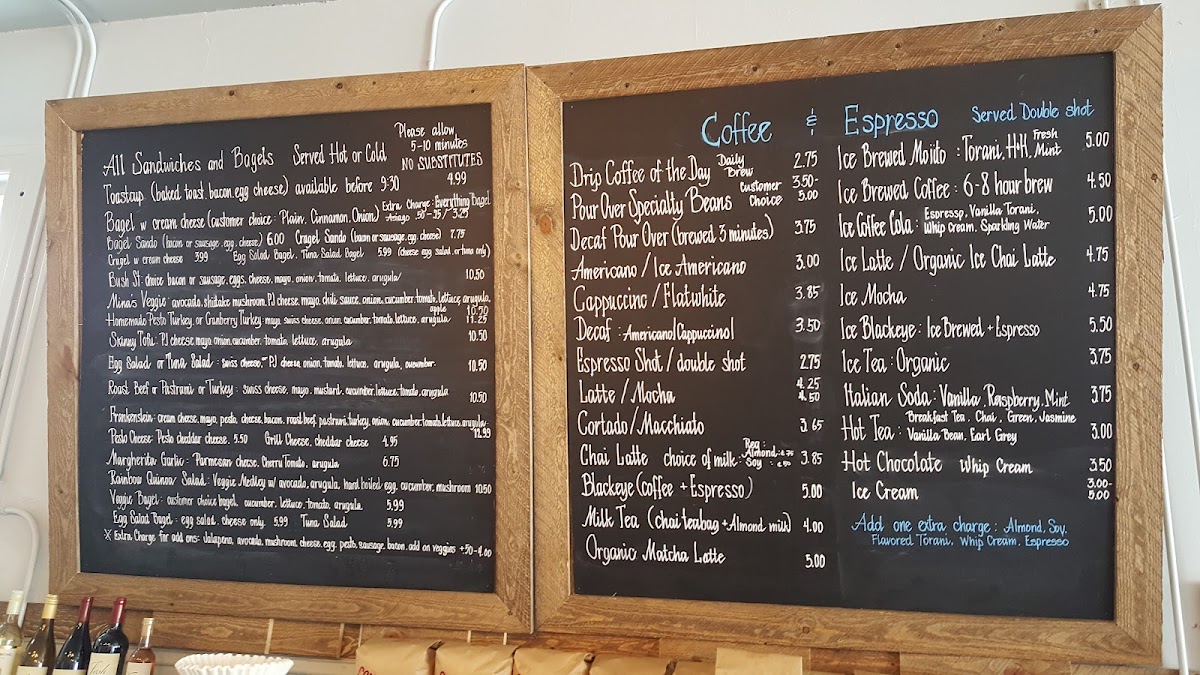 All Sandwiches and Bagels Served Hot or Cold
Please allow
5-10 minutes
NO SUBSTITUTES
Toastcup (baked toast, bacon, egg, cheese) available before 9:30 4.99
Bagel w cream cheese (Customer choice: Plain, Cinnamon, Onion) Extra Charge: Everything Bagel
Asiago .50 -.35 / 3.25
Bagel Sando (bacon or sausage, egg, cheese) 6.00 Cragel Sando (bacon or sausage, egg, cheese) 7.75
Cragel w cream cheese 3.99 Egg Salad Bagel, Tuna Salad Bagel 5.99 (cheese egg salad, or tuna only)
Bush St: choice bacon or sausage, eggs, cheese, mayo, onion, tomato, lettuce, arugula 10.50
Mina's Veggie: avocado, shiitake mushroom, PJ cheese, mayo, chili sauce, onion, cucumber, tomato, lettuce, arugula,
apple 10.50
Homemade Pesto Turkey, or Cranberry Turkey: mayo, swiss cheese, onion, cucumber, tomato, lettuce, arugula 11.25
Skinny Tofu: PJ cheese, mayo, onion, cucumber, tomato, lettuce, arugula 10.50
Egg Salad or Tuna Salad: swiss cheese, PJ cheese, onion, tomato, lettuce, arugula, cucumber. 10.50
Roast Beef or Pastrami or Turkey: swiss cheese, mayo, mustard, cucumber, lettuce, tomato, arugula 10.50
Frankenstein: cream cheese, mayo, pesto, cheese, bacon, roast beef, pastrami, turkey, onion, cucumber, tomato, lettuce, arugula
12.99
Pesto Cheese: Pesto cheddar cheese 5.50 Grill Cheese, cheddar cheese 4.95
Margherita Garlic: Parmesan cheese, Cherry Tomato, arugula 6.75
Rainbow Quinoa Salad: Veggie Medley w/ avocado, arugula, hard boiled egg, cucumber, mushroom 10.50
Veggie Bagel: customer choice bagel, cucumber, lettuce, tomato, arugula 5.99
Egg Salad Bagel: egg salad, cheese only, 5.99 Tuna Salad 5.99
※ Extra Charge for add ons: Jalapeno, avocado, mushroom, cheese, egg, pesto, sausage, bacon, add on veggies +.50-4.00
Coffee & Espresso Served Double shot
Drip Coffee of the Day Daily Brew 2.75
Pour Over Specialty Beans Customer Choice 3.50-5.00
Decaf Pour Over (brewed 3 minutes) 3.75
Americano / Ice Americano 3.00
Cappuccino / Flatwhite 3.85
Decaf: Americano|Cappuccino| 3.50
Espresso Shot / double shot 2.75
Latte / Mocha 4.25 4.50
Cortado / Macchiato 3.65
Chai Latte choice of milk: Reg: Almond: .75 Soy: .50 3.85
Blackeye (coffee + Espresso) 5.00
Milk Tea (chai teabag + Almond milk) 4.00
Organic Matcha Latte 5.00
Ice Brewed Mojito: Torani, H+H, Fresh Mint 5.00
Ice Brewed Coffee: 6-8 hour brew 4.50
Ice Coffee Cola: Espresso, Vanilla Torani, Whip cream, Sparkling Water 5.00
Ice Latte / Organic Ice Chai Latte 4.75
Ice Mocha 4.75
Ice Blackeye: Ice Brewed + Espresso 5.50
Ice Tea: Organic 3.75
Italian Soda: Vanilla, Raspberry, Mint 3.75
Hot Tea: Breakfast Tea, Chai, Green, Jasmine Vanilla Bean, Earl Grey 3.00
Hot Chocolate Whip Cream 3.50
Ice Cream 3.00-5.00
Add one extra charge: Almond, Soy,
Flavored Torani, Whip Cream, Espresso